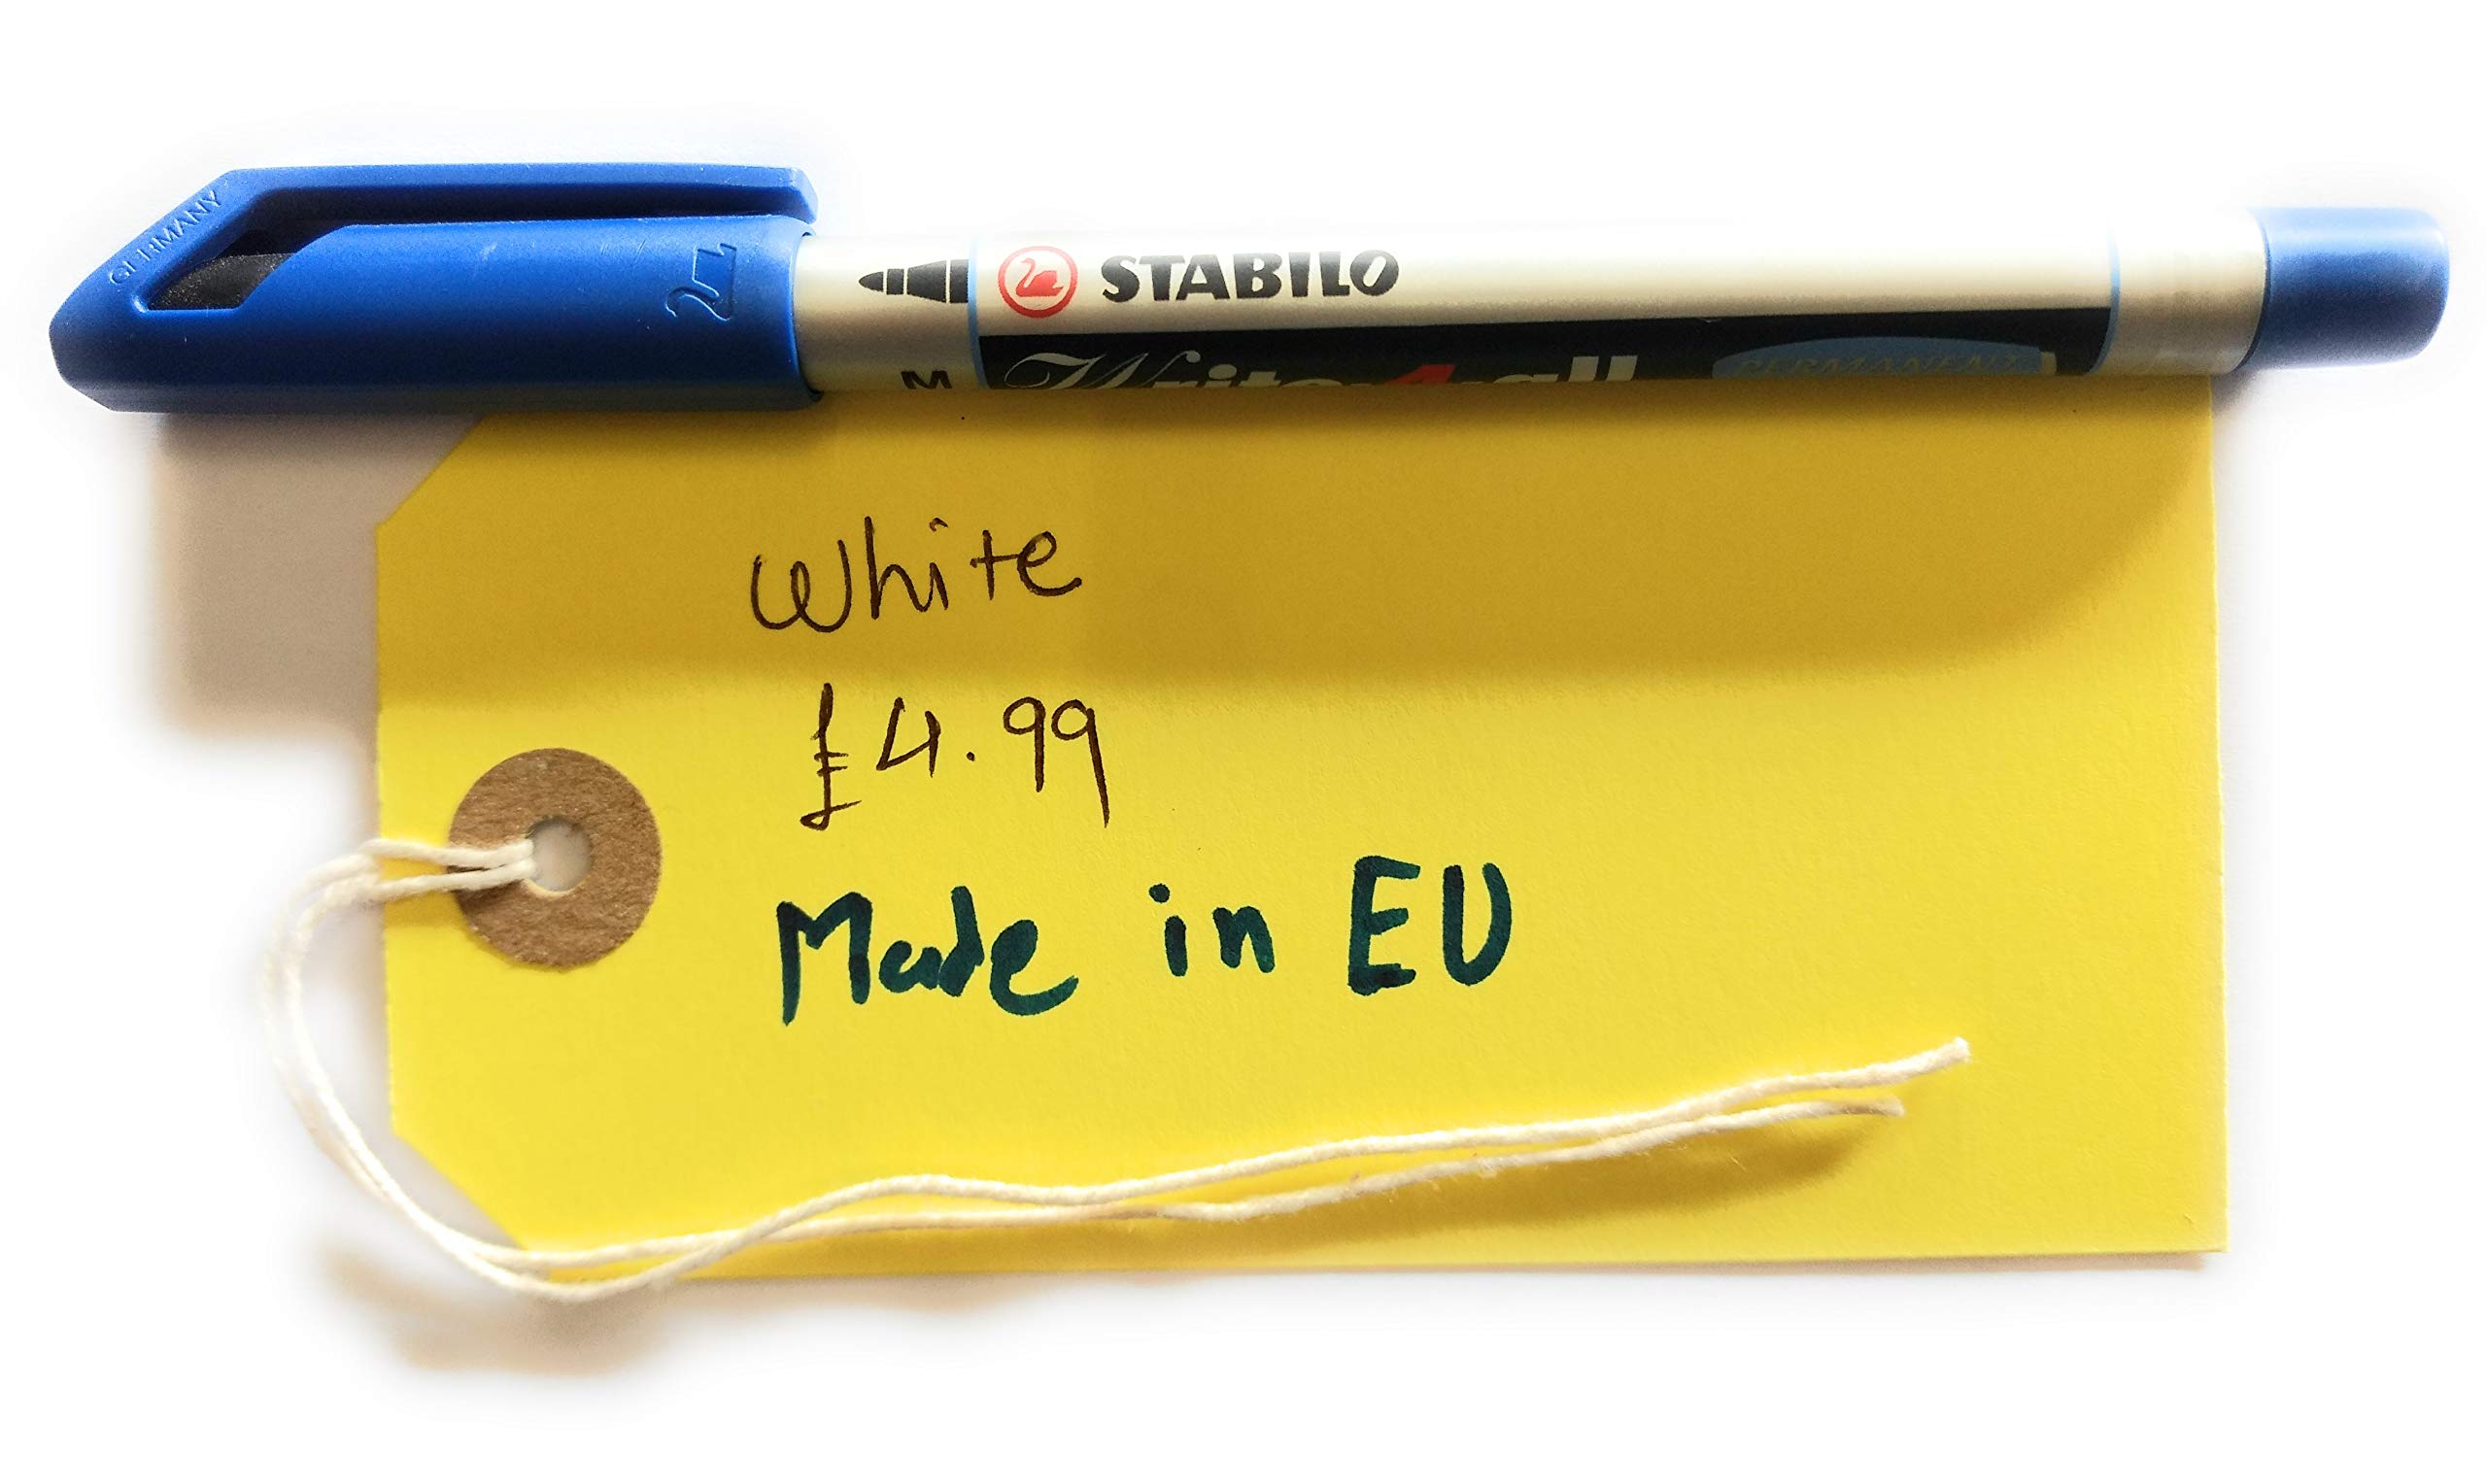 GERMANY
STABILO
M Write-4-all PERMANENT
White
£4.99
Made in EU